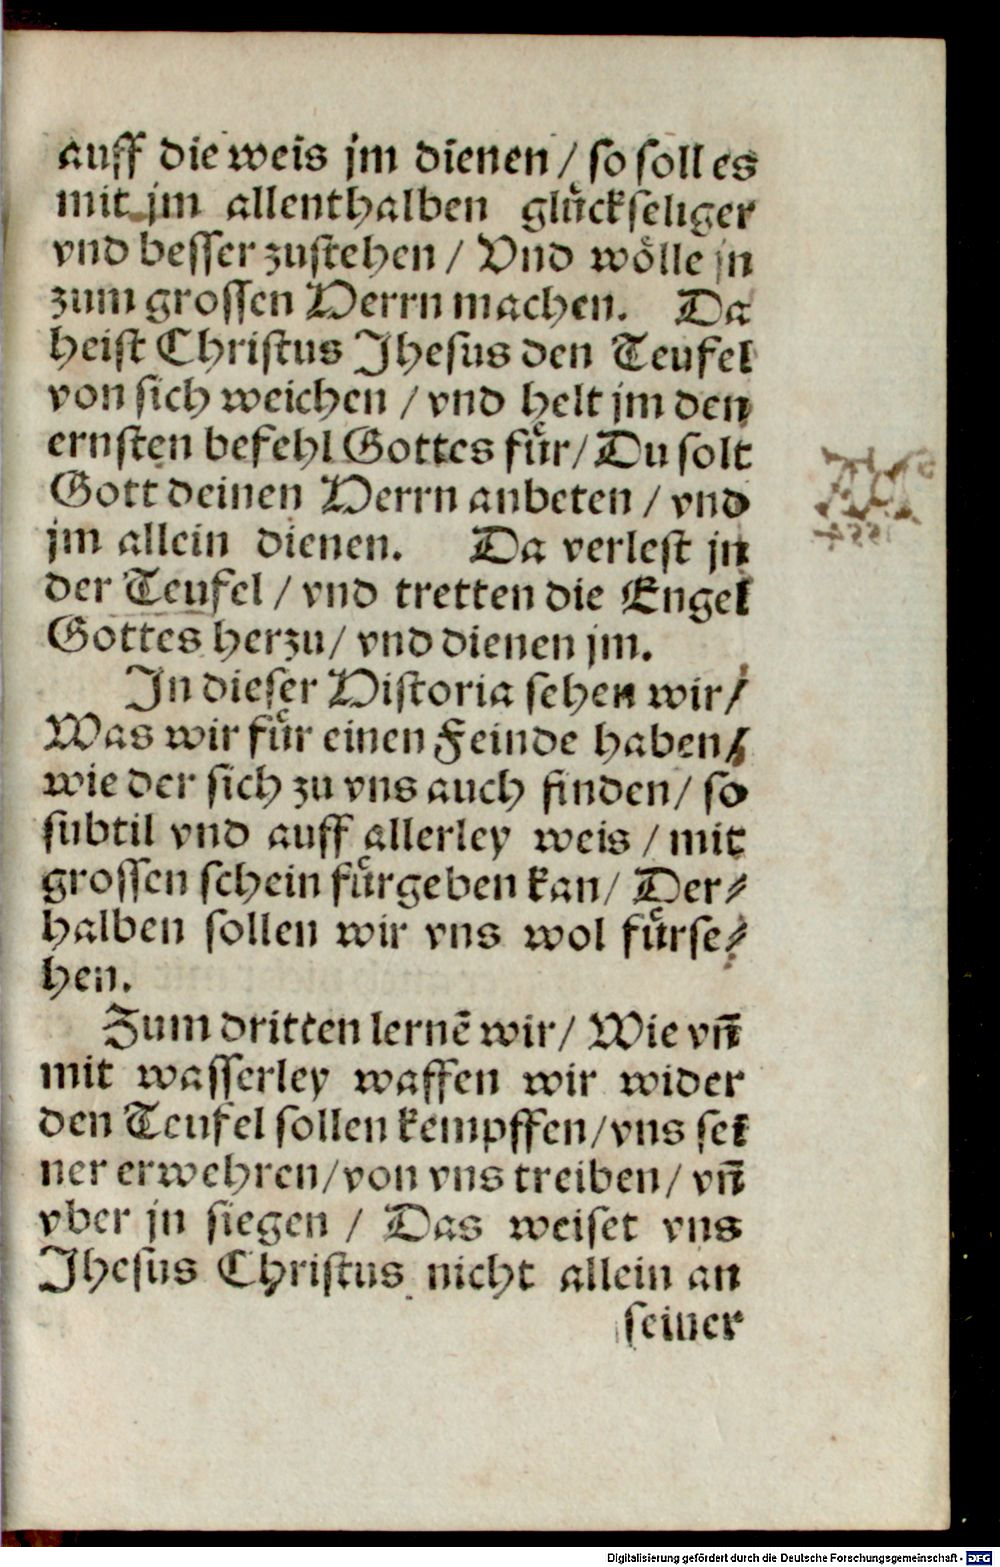 auff die weis jm dienen / so soll es
mit jm allenthalben glückseliger
vnd besser zustehen / Vnd wölle jn
zum grossen Herrn machen. Da
heist Christus Jhesus den Teufel
von sich weichen / vnd helt jm den
ernsten befehl Gottes für / Du solt
Gott deinen Herrn anbeten / vnd
jm allein dienen. Da verlest jn
der Teufel / vnd tretten die Engel
Gottes herzu / vnd dienen jm.
In dieser Historia sehen wir /
Was wir für einen Feinde haben /
wie der sich zu vns auch finden / so
subtil vnd auff allerley weis / mit
grossen schein fürgeben kan / Der⸗
halben sollen wir vns wol fürse⸗
hen.
Zum dritten lernē wir / Wie vn̄
mit wasserley waffen wir wider
den Teufel sollen kempffen / vns sei
ner erwehren / von vns treiben / vn̄
vber jn siegen / Das weiset vns
Jhesus Christus nicht allein an
seiner
1554
Digitalisierung gefördert durch die Deutsche Forschungsgemeinschaft - DFG